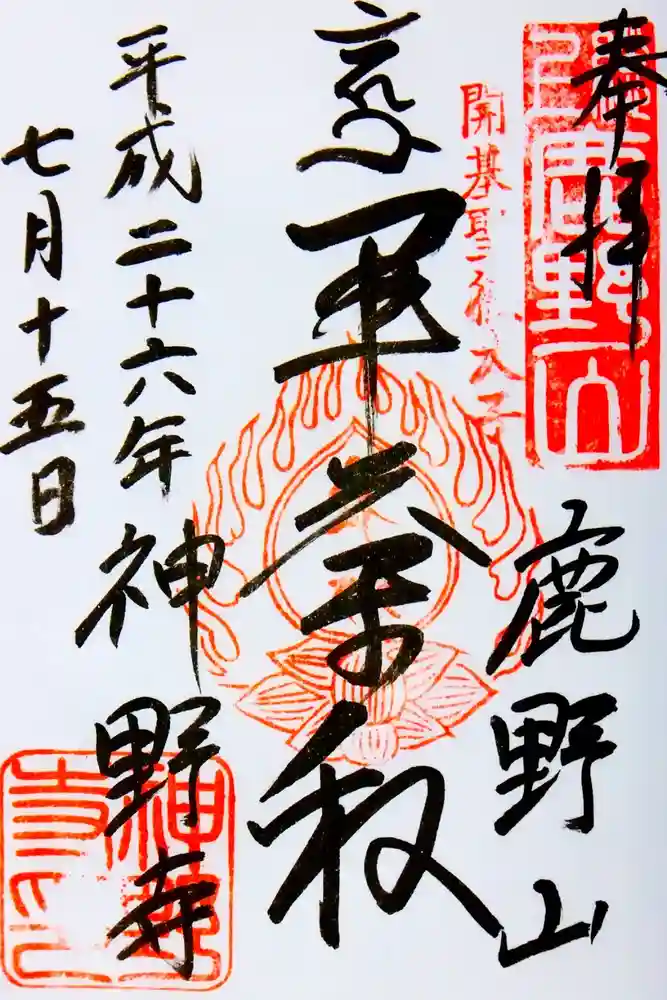 奉拝
鹿野山
開基聖徳太子
鹿野山
軍荼利
平成二十六年
神野寺
七月十五日
神野寺印